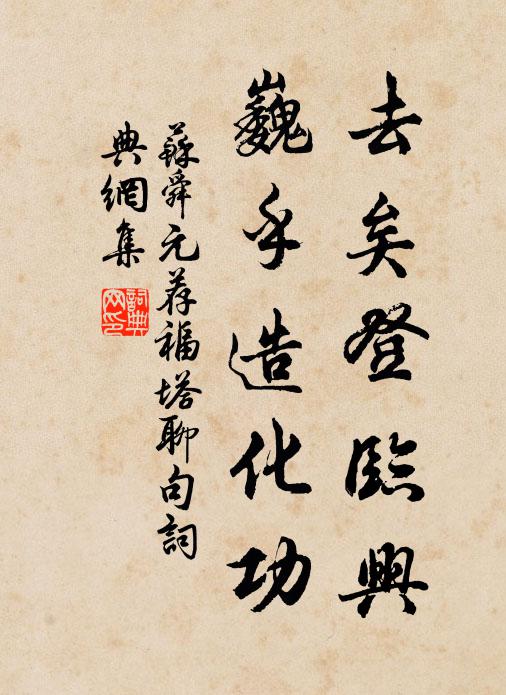 去矣登臨興
巍乎造化功
蘇舜元荐福塔聊句詞
典網集
詞典
网印